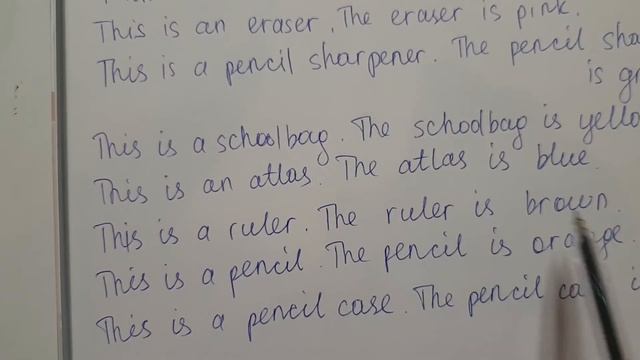 This is an eraser. The eraser is pink.
This is a pencil sharpener. The pencil sha
is gr
This is a schoolbag. The schoolbag is yello
This is an atlas. The atlas is blue.
This is a ruler. The ruler is brown.
This is a pencil. The pencil is orange.
This is a pencil case. The pencil ca i